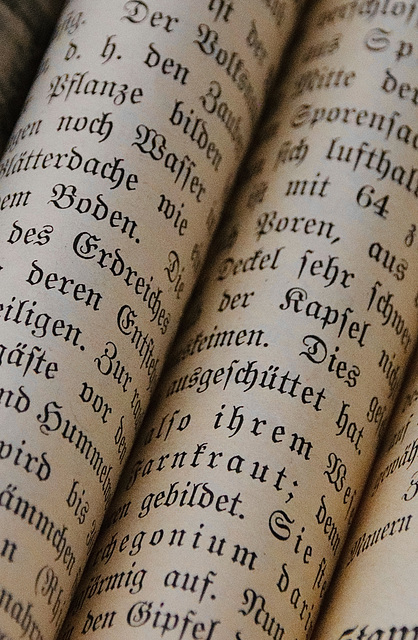 Der Volks
d. h. den Zau
Pflanze bilden
noch Wasser
lätterdache wie
em Boden.
des Erdreiches Die
deren Entste
eiligen. Zur
gäste vor den
nd Hummeln
wird bis
ämmchen
n (Rh
nahr
ist der
verschlos
aus Sp
Mitte der
Sporensac
sich lufthal
ist mit 64 z
Poren, aus
Deckel sehr schwer
der Kapsel nich
skeimen. Dies ge
ausgeschüttet hat.
also ihrem We
Farnkraut; denn
en gebildet. Sie
chegonium dar
förmig auf. Nun
den Gipfel
gewäh
Mauern